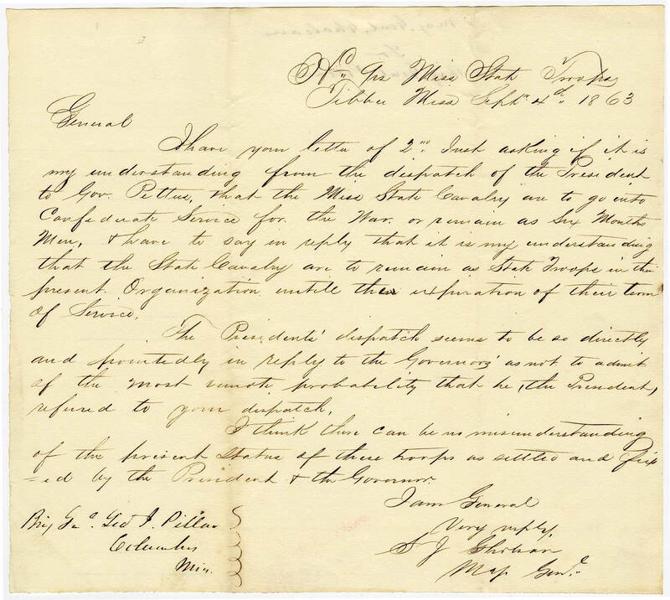 Hd Qrs Miss State Troops
Tibbee Miss Sept 4th 1863
General
I have your letter of 2nd Inst asking if it is
my understanding from the dispatch of the President
to Gov. Pettus, that the Miss State Cavalry are to go into
Confederate Service for the War. or remain as Six Months
Men, & have to say in reply that it is my understanding
that the State Cavalry are to remain as State Troops in the
present Organization untill the expiration of their term
of Service.
The Presidents' dispatch seems to be so directly
and pointedly in reply to the Governors' as not to admit
of the most remote probability that he, the President,
refered to your dispatch.
I think there can be no misunderstanding
of the present Status of these troops as settled and fix
=ed by the President & the Governor.
I am General
Very resply,
S J Gholson
Maj Genl
Brig Genl. Geo J. Pillow
Columbus
Miss.